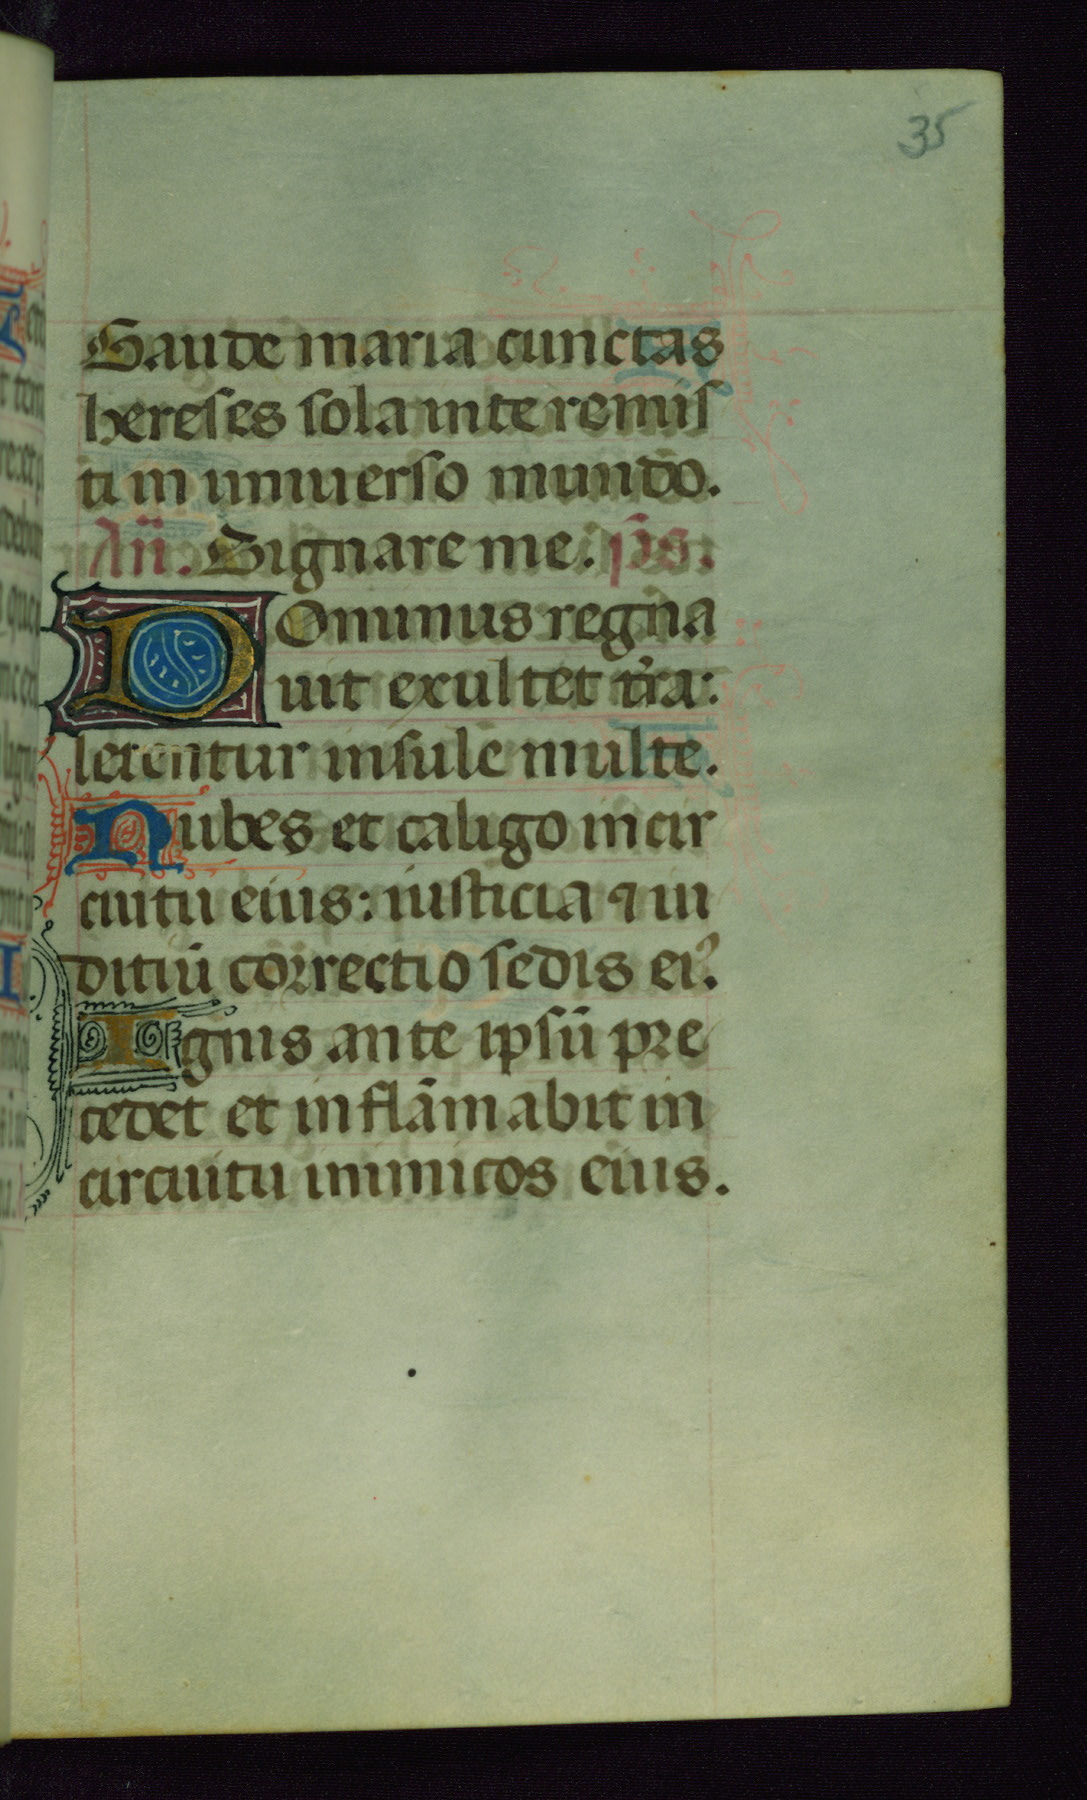 35
Gaude maria cunctas
hereses sola interemis
ti in universo mundo.
An̄. Dignare me. p̄s.
Dominus regna
uit exultet tr̄a:
letentur insule multe.
Nubes et caligo in cir
cuitu eius: iusticia ⁊ iu
ditiū correctio sedis ei⁹.
Ignis ante ipsū pre
cedet et inflām abit in
circuitu inimicos eius.